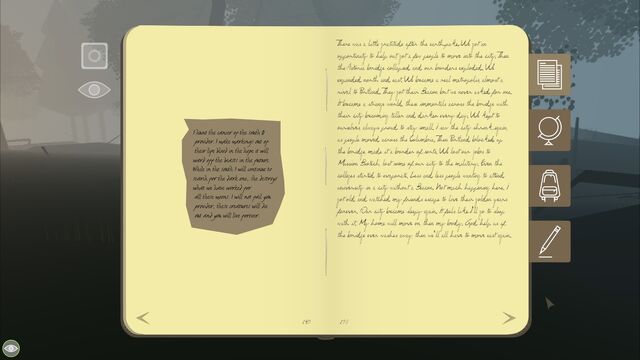 I have the cancer of the south &
provider. I write warnings out of
these lyo blood in the hope it will
ward off the beasts in the future.
While in the south I will continue to
search for the dark one, the destroyer
what we have worked for
all these years. I will not fail you
provider, these creatures will die
out and you will live forever.
There was a little gratitude after the earthquake, We got an
opportunity to help out got a few people to move into the city, Then
the Astoria bridge collapsed and our boarders exploded, We
expanded north and east, We became a real metropolis, almost a
rival to Portland, They got their Beacon but we never asked for one,
It became a strange world, these immortals across the bridge with
their city becoming taller and darker every day, We kept to
ourselves, always proud to stay small, I saw the city shrink again
as people moved across the Columbia, Then Portland
the bridge made it's boarder
Mission Biotech, lost some of our city to the military, Even the
colleges started to evaporate, less and less people wanting to attend
university in a city without a Beacon, Not much happening here, I
got old and watched my friends escape to live their golden years
forever, Our city became sleepy again, It feels like I'll go to sleep
with it, My home will move on then my body, God, help us if
the bridge ever washes away then we'll all have to move east again,